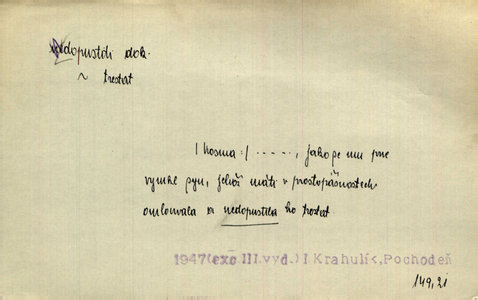 nedopustiti dok.
~ trestat
/ Kosma :/ ....., jako pe mu pne
vymkl syn, jehož máti v prostopášnostech
omlouvala a nedopustila ho trestat
1947(exc III.vyd.)I Krahulík,Pochodeň
149,21